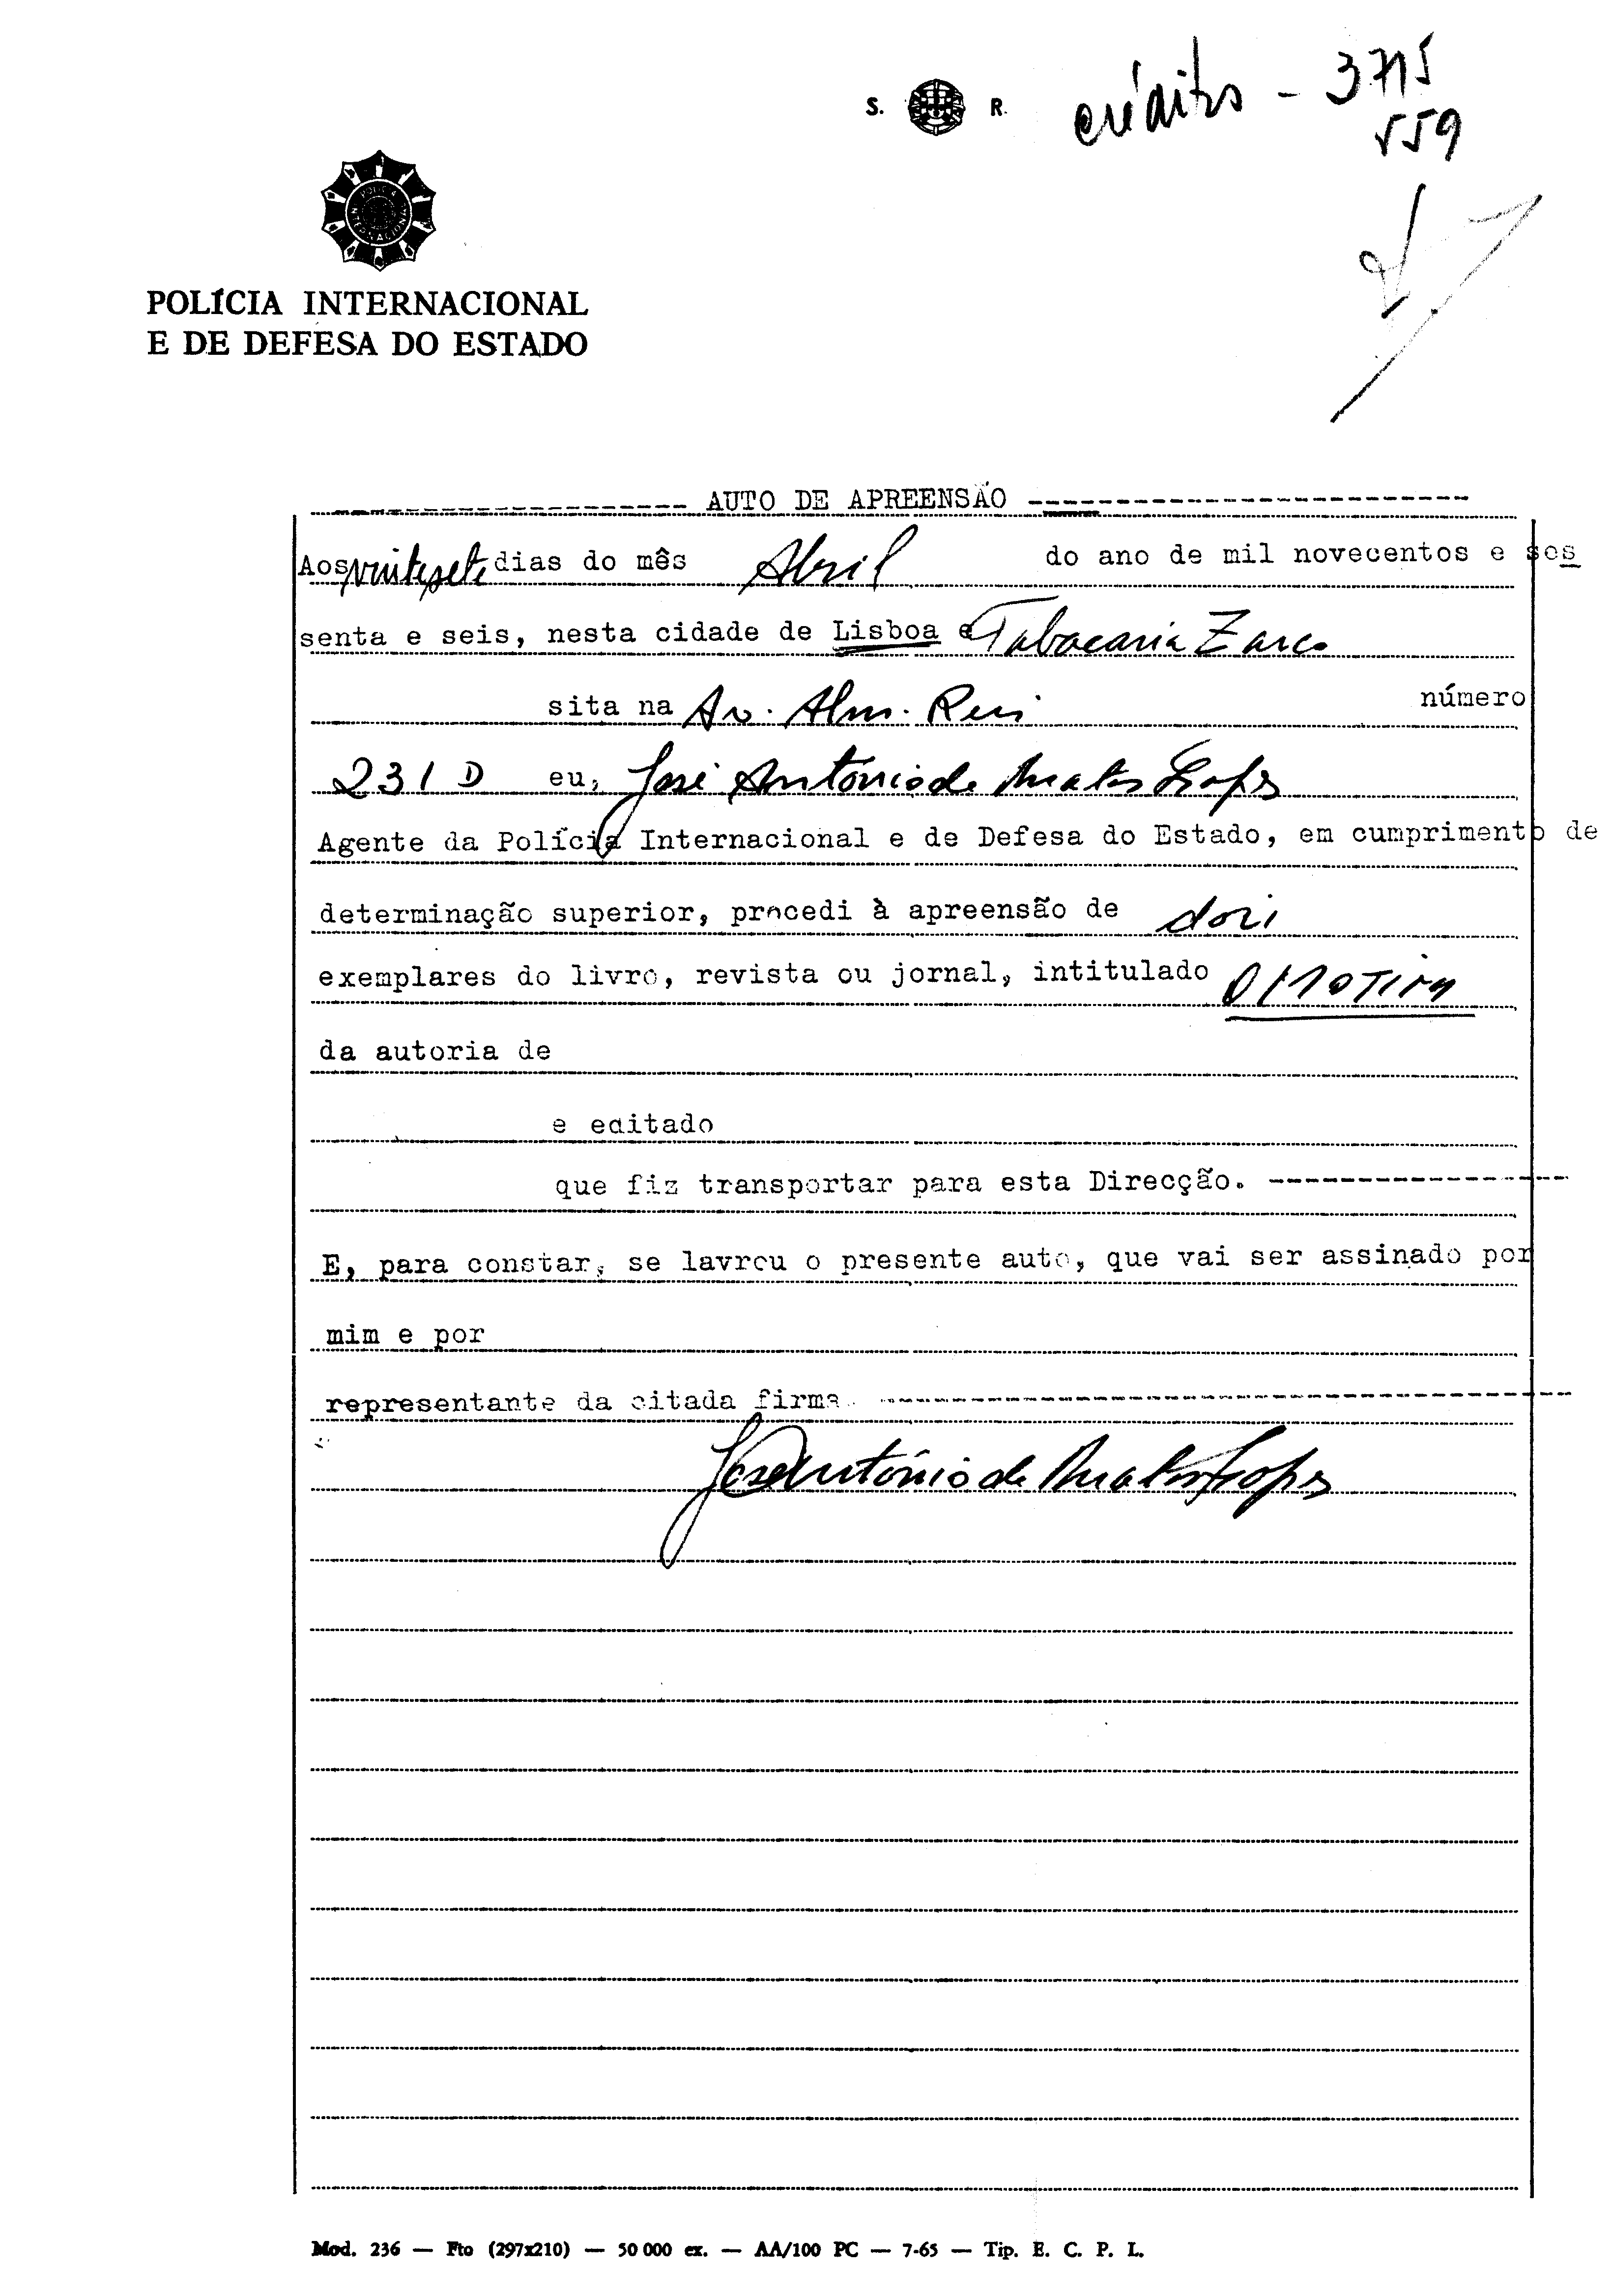 S. R.
créditos - 3715
559
POLÍCIA INTERNACIONAL
E DE DEFESA DO ESTADO
------------------- AUTO DE APREENSÃO -------------------------
Aos vintesete dias do mês Abril do ano de mil novecentos e ses
senta e seis, nesta cidade de Lisboa e Tabacaria Zarco
sita na Av. Alm. Reis número
231 D eu, José António de Matos Lopes
Agente da Polícia Internacional e de Defesa do Estado, em cumprimento de
determinação superior, procedi à apreensão de dois
exemplares do livro, revista ou jornal, intitulado O MOTIM
da autoria de
e editado
que fiz transportar para esta Direcção. -----------------
E, para constar, se lavrou o presente auto, que vai ser assinado por
mim e por
representante da citada firma. ---------------------------------------
José António de Matos Lopes
Mod. 236 — Fto (297x210) — 50 000 ex. — AA/100 PC — 7-65 — Tip. E. C. P. L.